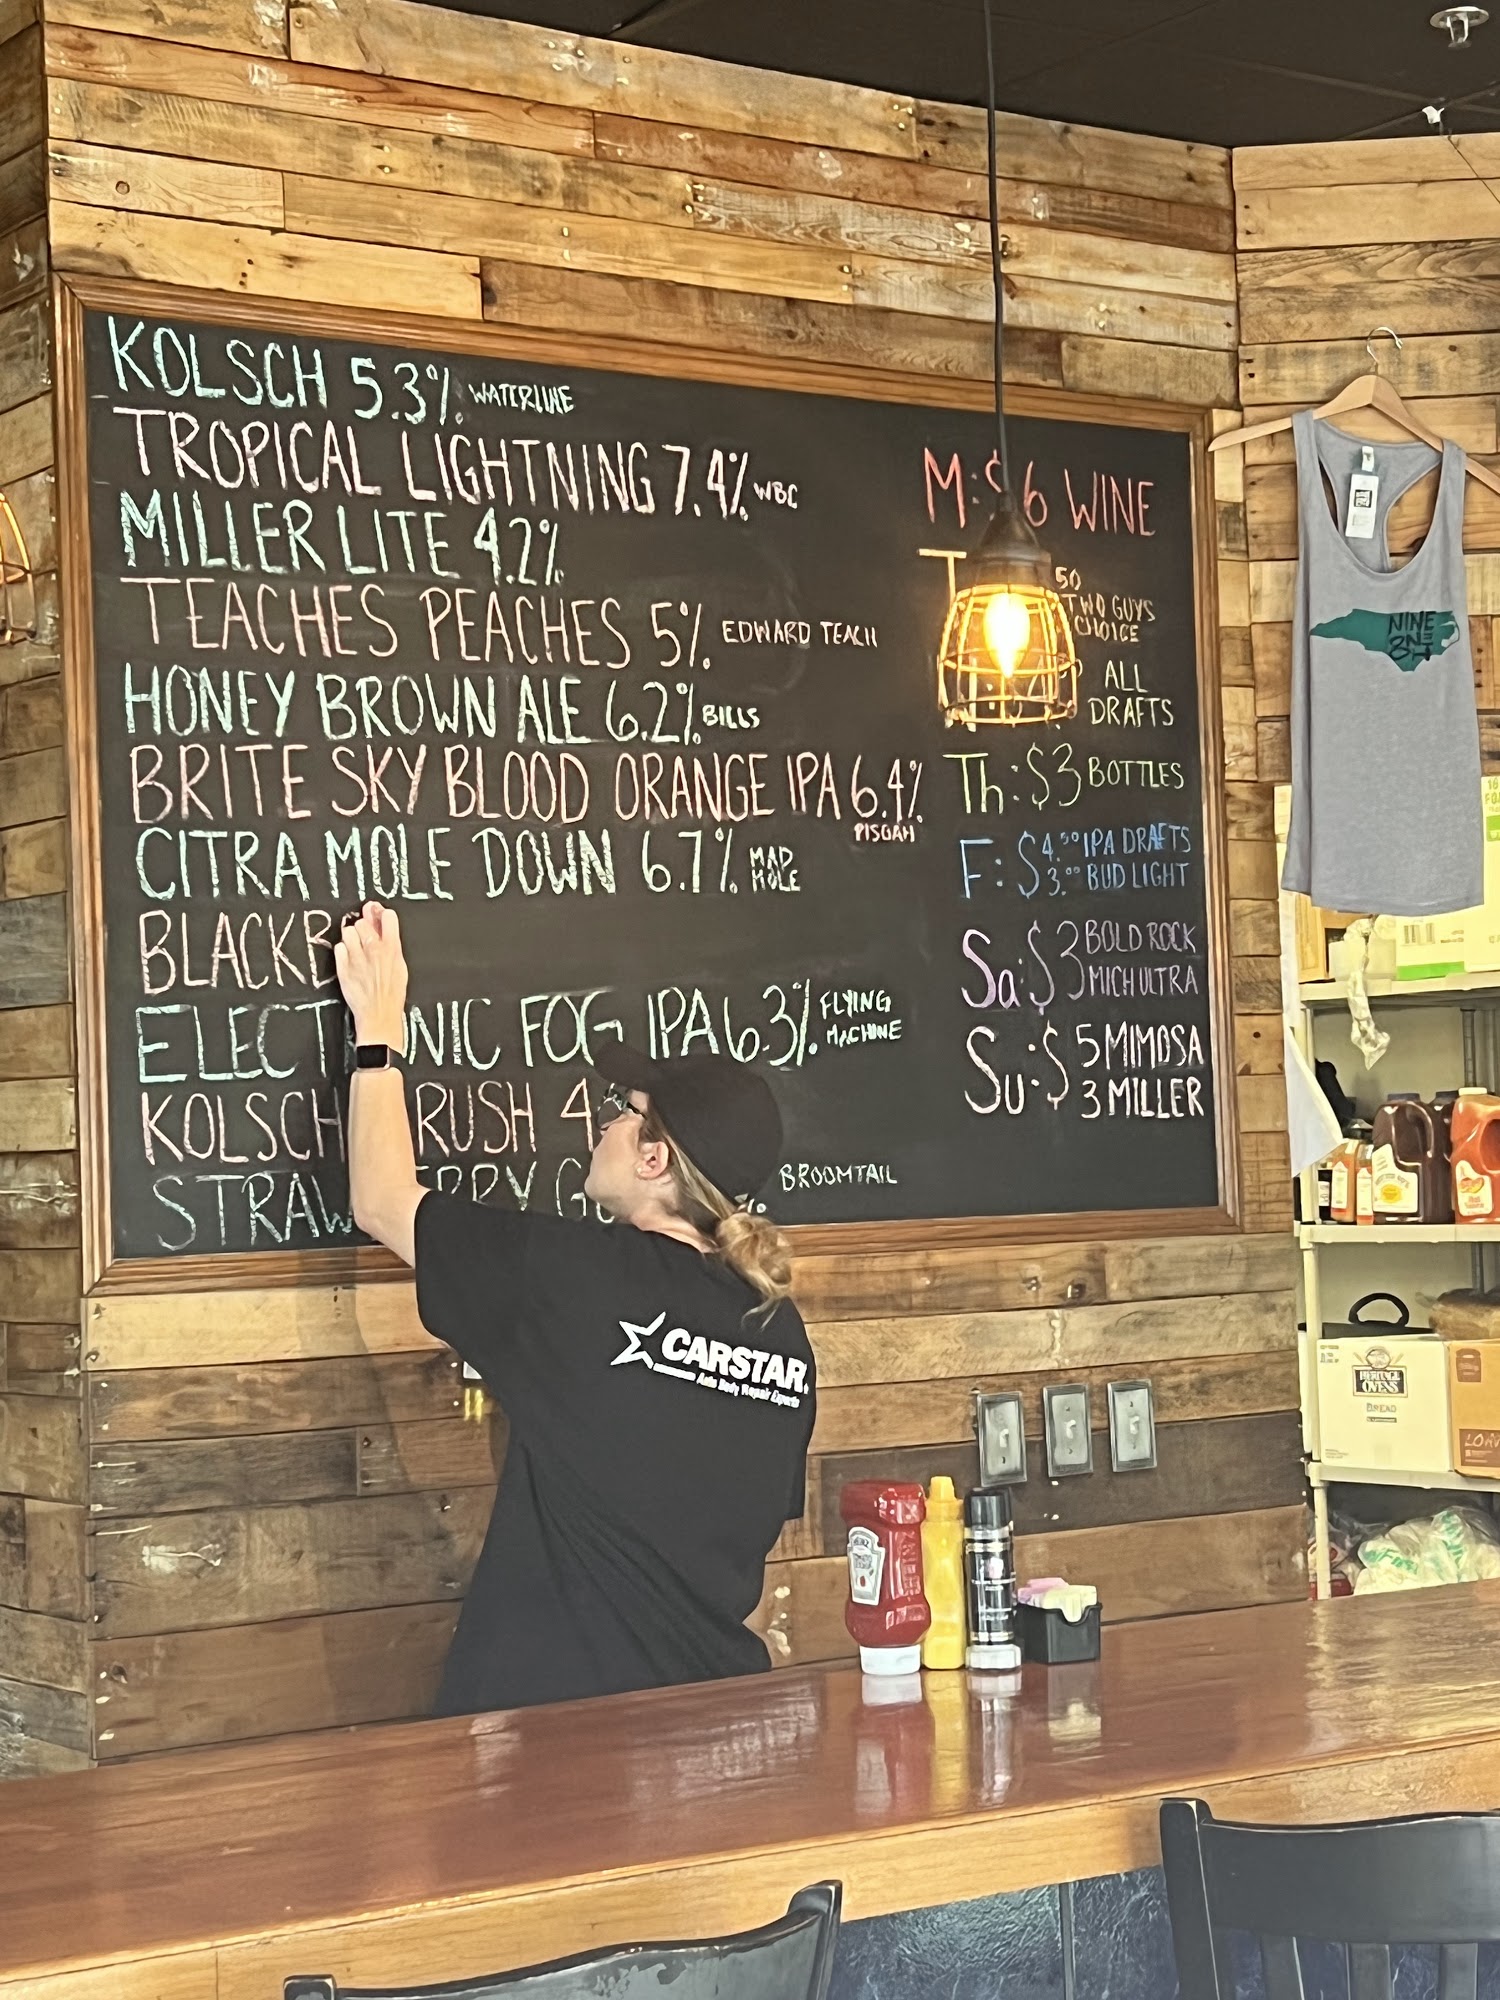 KOLSCH 5.3% WATERLINE
TROPICAL LIGHTNING 7.4% WBC
MILLER LITE 4.2%
TEACHES PEACHES 5% EDWARD TEACH
HONEY BROWN ALE 6.2% BILLS
BRITE SKY BLOOD ORANGE IPA 6.4%
PISGAH
CITRA MOLE DOWN 6.7% MAD
MOLE
BLACKB
ELECT NIC FOG IPA 6.3% FLYING
MACHINE
KOLSCH RUSH 4
STRAW BROOMTAIL
M: $6 WINE
T 50
TWO GUYS
CHOICE
ALL
DRAFTS
Th: $3 BOTTLES
F: $4.00 IPA DRAFTS
3.00 BUD LIGHT
Sa: $3 BOLD ROCK
MICH ULTRA
Su: $5 MIMOSA
3 MILLER
NINE
ONE
CARSTAR
Auto Body Repair Experts
HERITAGE
OVENS
BREAD
HEINZ
TOMATO
HEINZ